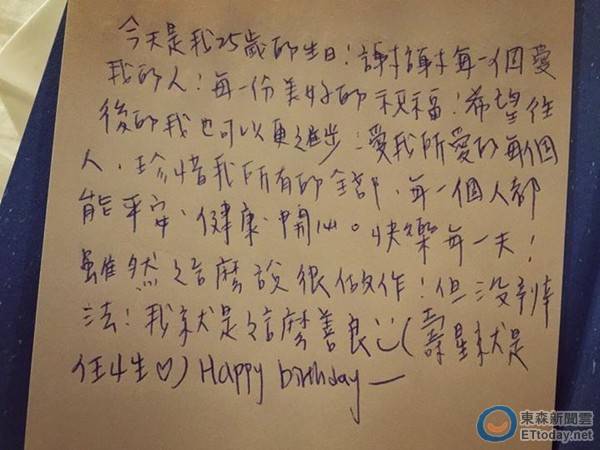 今天是我25歲的生日！謝謝每一個愛
我的人！每一份美好的祝福！希望往
後的我也可以更進步！愛我所愛的每個
人，珍惜我所有的全部，每一個人都
能平安、健康、開心。快樂每一天！
雖然這麼說很做作！但沒辦
法！我就是這麼善良(壽星就是
任性♡) Happy birthday—
東森新聞雲
ETtoday.net